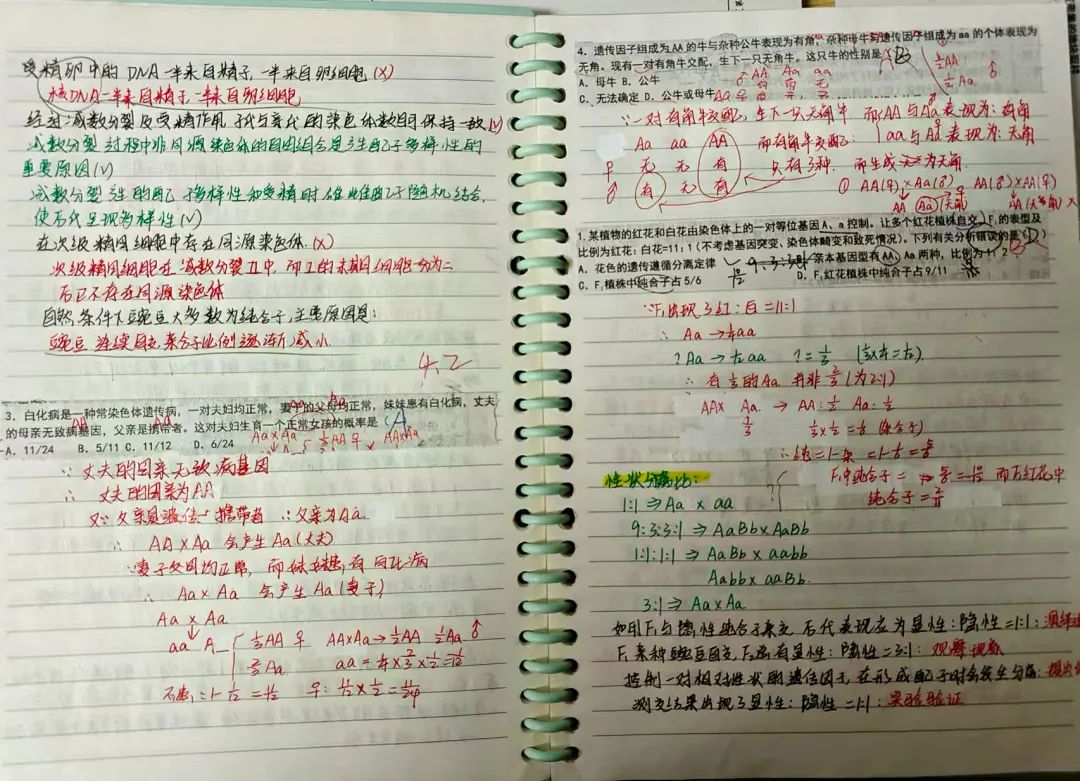 受精卵中的DNA一半来自精子,一半来自卵细胞(X)
核DNA一半来自精子,一半来自卵细胞
经过减数分裂及受精作用,子代与亲代的染色体数目可保持一致(√)
减数分裂过程中非同源染色体的自由组合是产生配子多样性的
重要原因(√)
减数分裂产生的配子多样性和受精时雌雄配子随机结合,
使后代呈现多样性(√)
在次级精母细胞中存在同源染色体.(X)
次级精母细胞在减数分裂Ⅱ中,而Ⅰ的末期细胞一分为二
后已不存在同源染色体
自然条件下豌豆大多数为纯合子,主要原因是:
豌豆连续自交,杂合子比例逐渐减小
4.2
3. 白化病是一种常染色体遗传病,一对夫妇均正常,妻子的父母均正常,妹妹患有白化病,丈夫
的母亲无致病基因,父亲是携带者。这对夫妇生育一个正常女孩的概率是
A. 11/24 B. 5/11 C. 11/12 D. 6/24
∵丈夫的母亲无致病基因
∴丈夫的母亲为AA
又∵父亲是携带者 ∴父亲为Aa.
∴AA×Aa 会产生Aa(丈夫)
∵妻子父母均正常,而妹妹患有白化病
∴Aa×Aa 会产生Aa(妻子)
Aa × Aa
aa A_ 1/3AA ♀ AA×Aa→1/2AA 1/2Aa ♂
2/3Aa. aa=1/4×2/3×1/2=1/12
正常:1-1/12=11/12 ♀:11/12×1/2=11/24
4. 遗传因子组成为AA的牛与杂种公牛表现为有角,杂种母牛与遗传因子组成为aa的个体表现为
无角。现有一对有角牛交配,生下一只无角牛,这只牛的性别是
A. 母牛 B. 公牛
C. 无法确定 D. 公牛或母牛
∵一对有角牛交配,生下一只无角牛 而AA与Aa♂表现为:有角
Aa aa AA 而有角牛交配: aa与Aa♀表现为:无角
♀ 无 无 有 只有2种. 而生成为无角.
♂ 有 无 有 ①AA(♀)×Aa(♂) AA(♂)×AA(♀)
AA Aa
1. 某植物的红花和白花由染色体上的一对等位基因A、a控制。让多个红花植株自交,F₁的表型及
比例为红花:白花=11:1(不考虑基因突变、染色体畸变和致死情况)。下列有关分析错误的是( )
A. 花色的遗传遵循分离定律 亲本基因型有AA、Aa两种,比例为1:2
C. F₁植株中纯合子占5/6 D. F₁红花植株中纯合子占9/11
∵F₁出现了红:白=11:1
∴Aa→1/4aa
?Aa→1/12aa ?=1/3 (1/3×1/4=1/12)
∴有1/3的Aa 并非2/3(为2:1)
AA× Aa. → AA:1/2 Aa:1/2
1/3 1/3×1/2=1/6(杂合子)
∴纯=1-杂=1-1/6=5/6
F₁中纯合子=5/6=10/12 而F₁红花中
纯合子=9/11
性状分离比:
1:1⇒Aa × aa
9:3:3:1⇒AaBb×AaBb
1:1:1:1⇒AaBb×aabb
Aabb×aaBb.
3:1⇒Aa×Aa.
如用F₁与隐性纯合子杂交,后代表现应为显性:隐性=1:1:演绎
F₁杂种豌豆自交,F₂会有显性:隐性=3:1:观察现象
控制一对相对性状的遗传因子,在形成配子时会发生分离:提出
测交结果出现了显性:隐性=1:1:实验验证